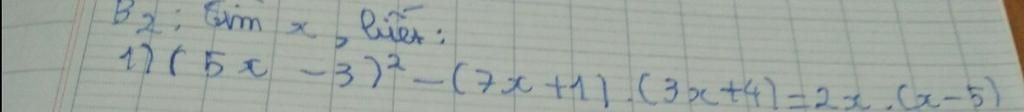 B2: Tìm x, biết:
1) (5x - 3)² - (7x + 1).(3x + 4) = 2x.(x - 5)